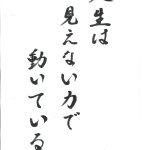 生は
見えない力で
動いている